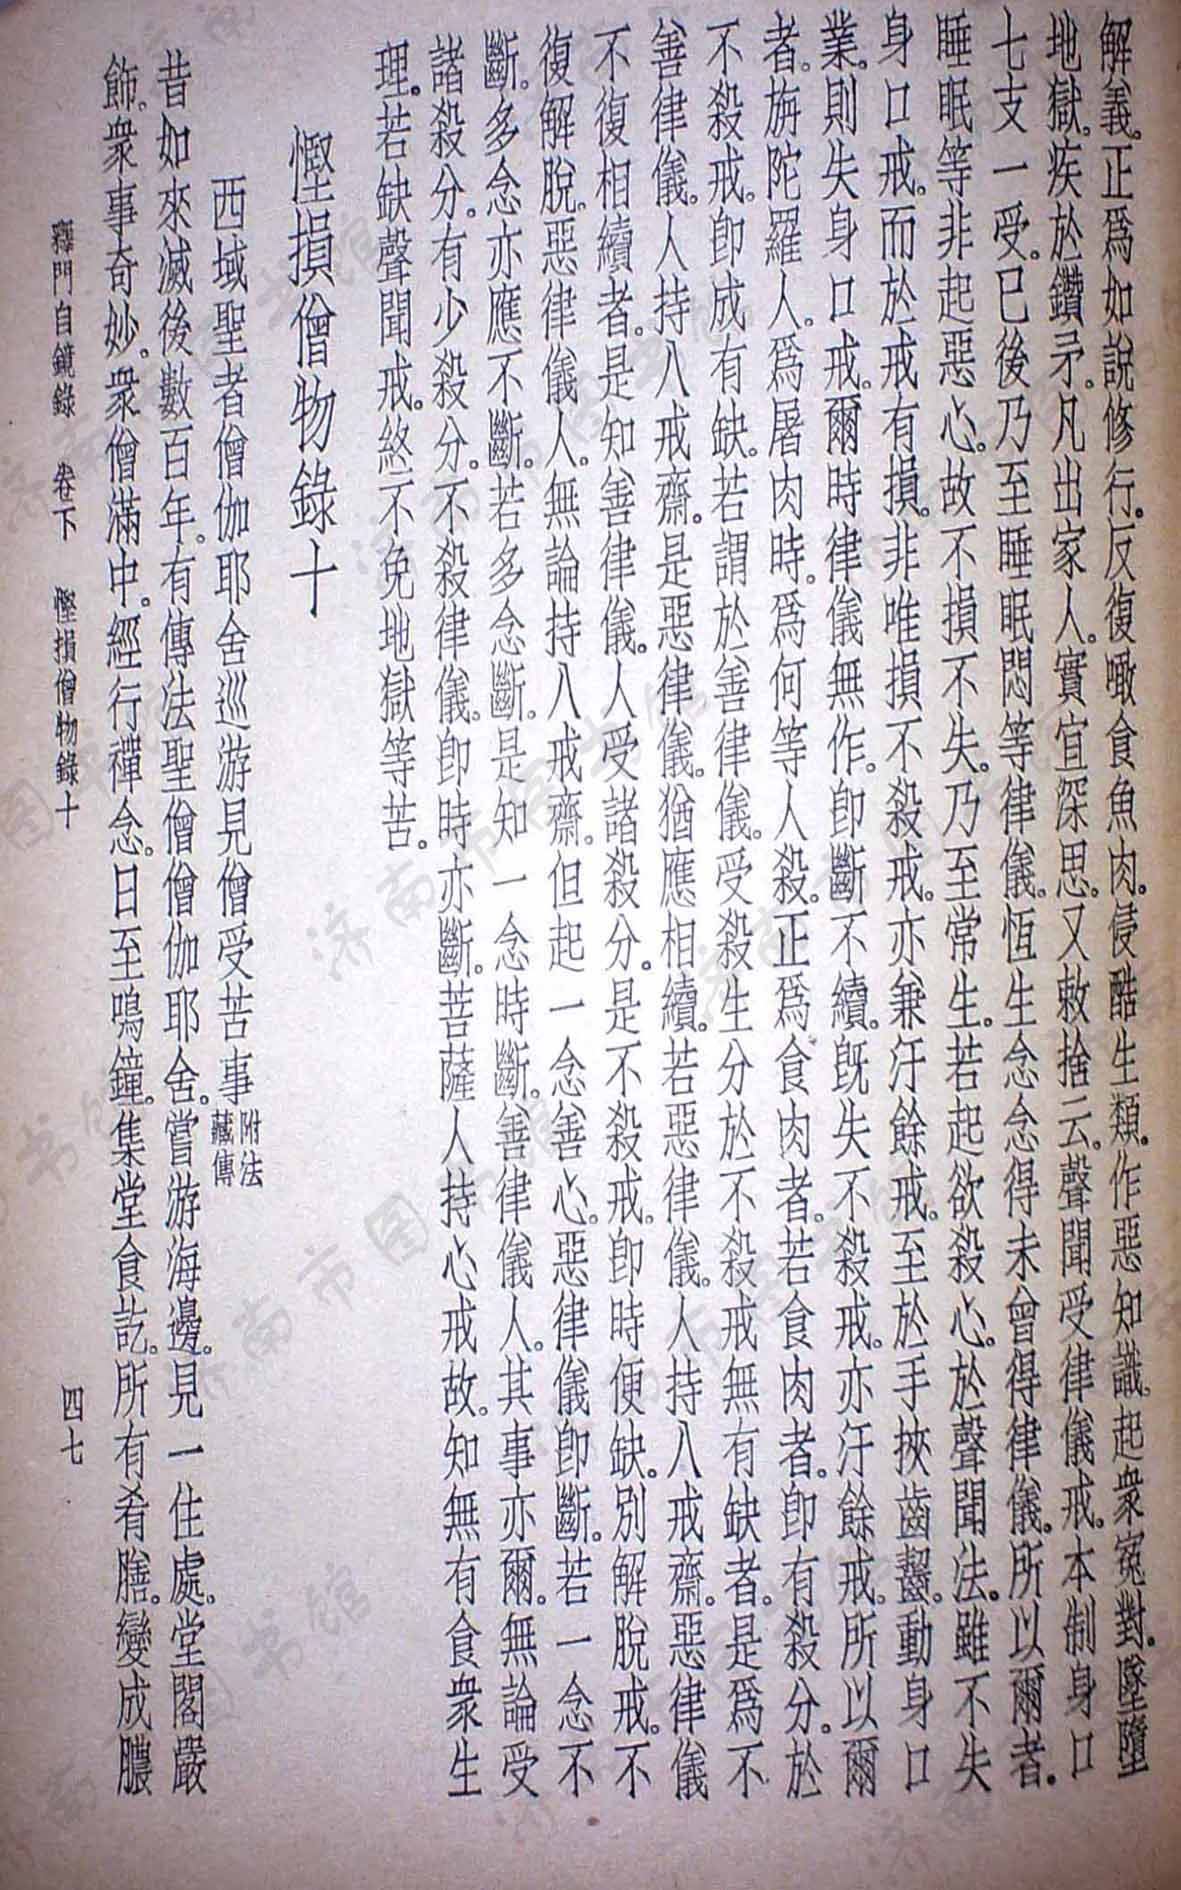 解義。正爲如說修行。反復噉食魚肉。侵酷生類。作惡知識。起衆冤對。墜墮
地獄。疾於鑽矛。凡出家人。實宜深思。又敕捨云。聲聞受律儀戒。本制身口
七支一受。已後乃至睡眠悶等律儀。恆生念念得未曾得律儀。所以爾者。
睡眠等非起惡心。故不損不失。乃至常生。若起欲殺心。於聲聞法。雖不失
身口戒。而於戒有損。非唯損不殺戒。亦兼汙餘戒。至於手挾齒齧。動身口
業。則失身口戒。爾時律儀無作。卽斷不續。旣失不殺戒。亦汙餘戒。所以爾
者。旃陀羅人。爲屠肉時。爲何等人殺。正爲食肉者。若食肉者。卽有殺分。於
不殺戒。卽成有缺。若謂於善律儀。受殺生分於不殺戒無有缺者。是爲不
善律儀。人持八戒齋。是惡律儀。猶應相續。若惡律儀。人持八戒齋。惡律儀
不復相續者。是知善律儀。人受諸殺分。是不殺戒。卽時便缺。別解脫戒。不
復解脫。惡律儀人。無論持八戒齋。但起一念善心。惡律儀卽斷。若一念不
斷。多念亦應不斷。若多念斷。是知一念時斷。善律儀人。其事亦爾。無論受
諸殺分。有少殺分。不殺律儀。卽時亦斷。菩薩人持心戒故。知無有食衆生
理。若缺聲聞戒。終不免地獄等苦。
慳損僧物錄十
西域聖者僧伽耶舍巡游見僧受苦事 附法藏傳
昔如來滅後數百年。有傳法聖僧僧伽耶舍。嘗游海邊。見一住處。堂閣嚴
飾。衆事奇妙。衆僧滿中。經行禪念。日至鳴鐘。集堂食訖。所有肴膳。變成膿
釋門自鏡錄 卷下 慳損僧物錄十
四七